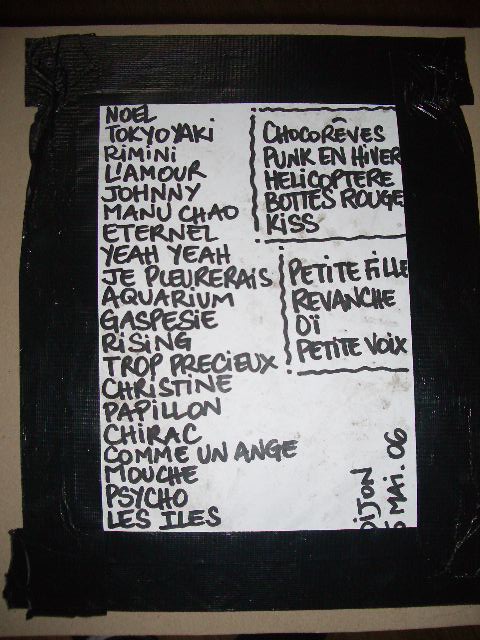 NOEL
TOKYO YAKi
RiMiNi
L'AMOUR
JOHNNY
MANU CHAO
ETERNEL
YEAH YEAH
JE PLEURERAiS
AQUARiUM
GASPESiE
RiSiNG
TROP PRECiEUX
CHRiSTiNE
PAPiLLON
CHiRAC
COMME UN ANGE
MOUCHE
PSYCHO
LES ILES
CHOCORÊVES
PUNK EN HiVER
HELiCOPTERE
BOTTES ROUGE
KiSS
PETiTE FiLLE
REVANCHE
Oï
PETiTE VOiX
DiJON
MAi. 06